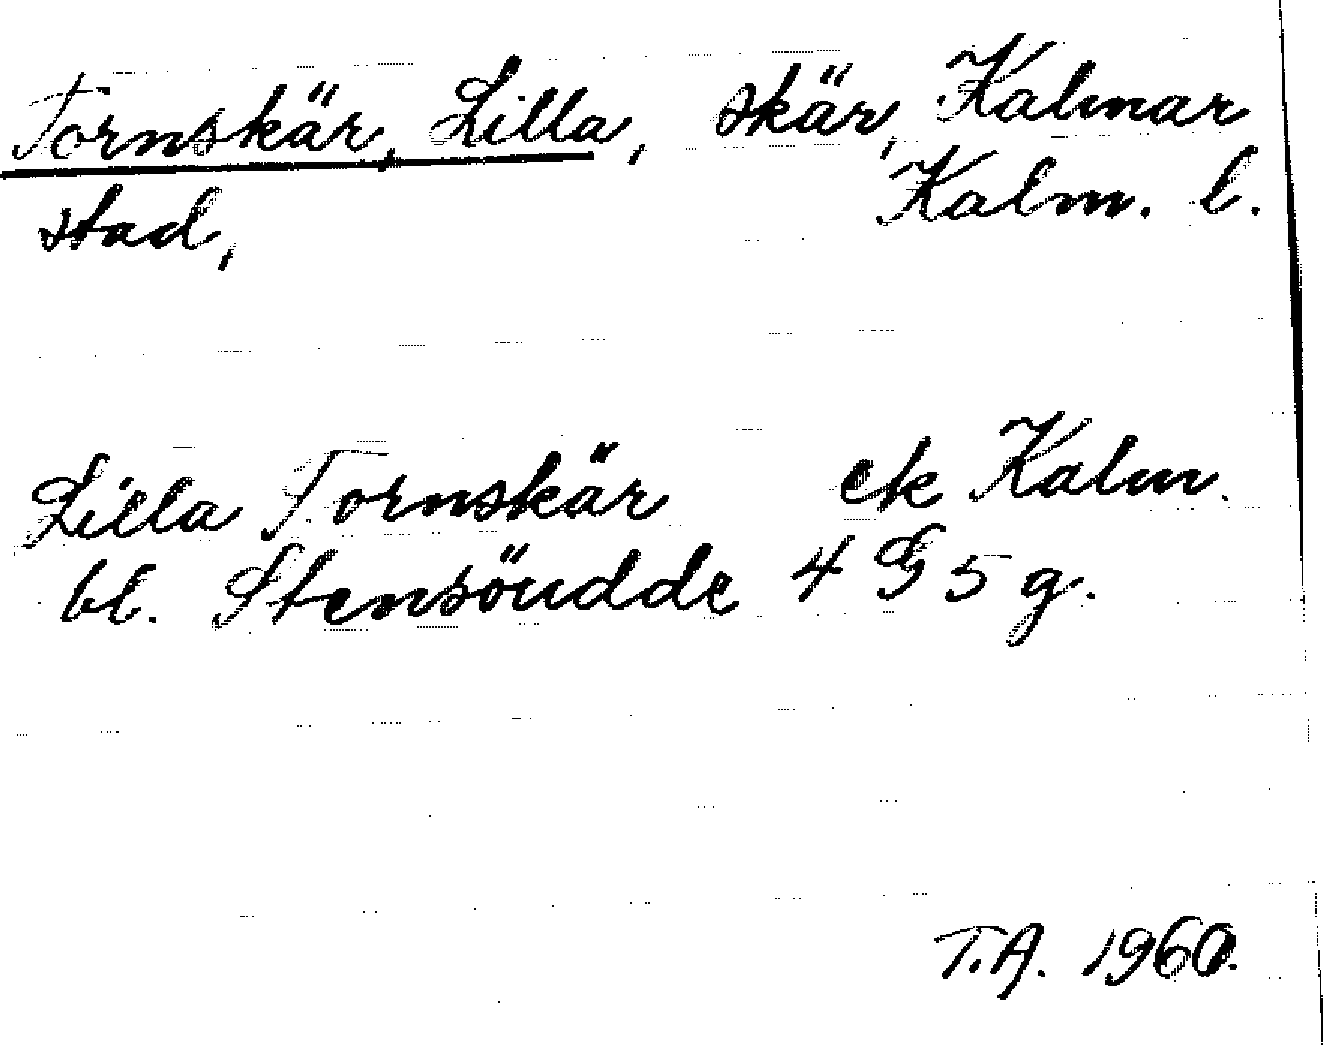 Tornskär, Lilla, skär, Kalmar
stad, Kalm. l.
Lilla Tornskär ek Kalm.
bl. Stensöudde 4 G 5 g.
T.A. 1960.